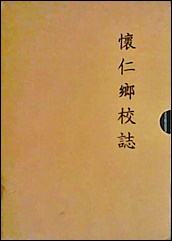 懷仁鄉校誌